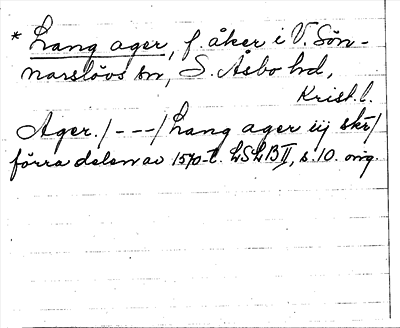 * Lang ager, f. åker i V. Sön-
narslövs sn, S. Åsbo hd,
Krist. l.
Ager. / - - - / Lang ager iij skr /
förra delen av 1570-t. LSLB II, s. 10. orig.